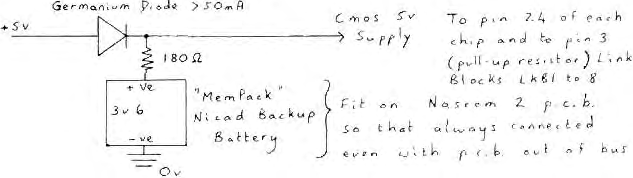 Germanium Diode >50mA
+5v
Cmos 5v
Supply
To pin 24 of each
chip and to pin 3
(pull-up resistor) Link
Blocks LKB1 to 8
180Ω
+ve
3v6
-ve
0v
"MemPack"
Nicad Backup
Battery
Fit on Nasrom 2 p.c.b.
so that always connected
even with p.c.b. out of bus